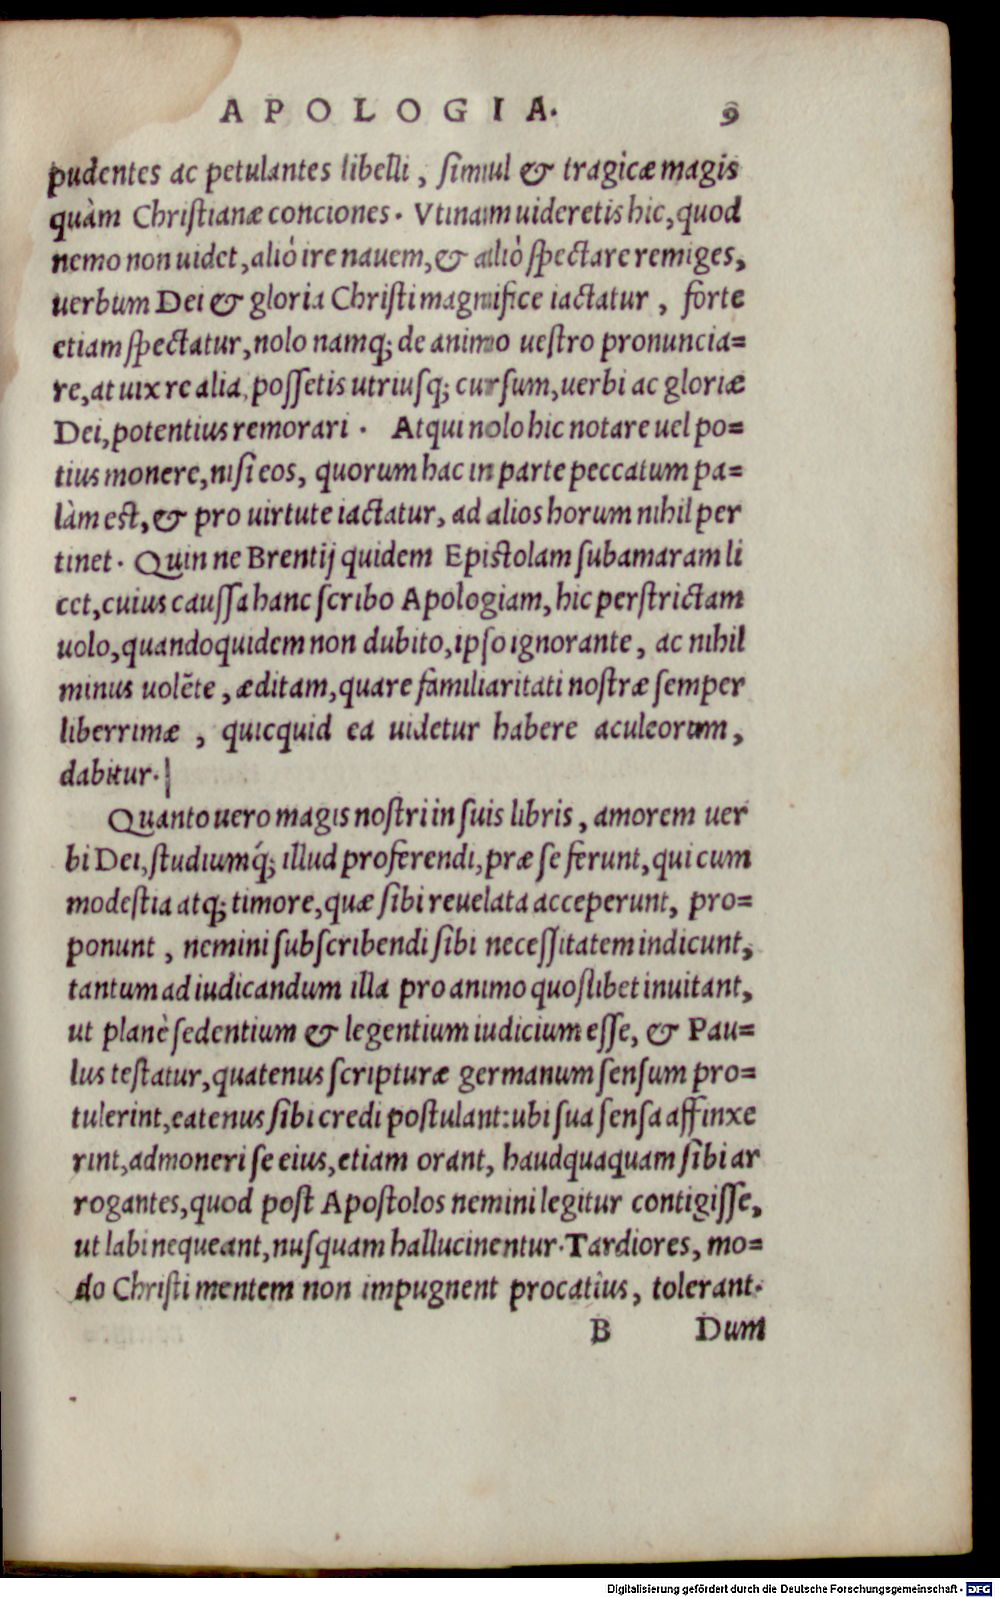 APOLOGIA. 9
pudentes ac petulantes libelli, simul & tragicæ magis
quàm Christianæ conciones. Vtinam uideretis hic, quod
nemo non uidet, aliò ire nauem, & aliò spectare remiges,
uerbum Dei & gloria Christi magnifice iactatur, forte
etiam spectatur, nolo namq; de animo uestro pronuncia=
re, at uix re alia, possetis utriusq; cursum, uerbi ac gloriæ
Dei, potentius remorari. Atqui nolo hic notare uel po=
tius monere, nisi eos, quorum hac in parte peccatum pa=
làm est, & pro uirtute iactatur, ad alios horum nihil per
tinet. Quin ne Brentij quidem Epistolam subamaram li
cet, cuius caussa hanc scribo Apologiam, hic perstrictam
uolo, quandoquidem non dubito, ipso ignorante, ac nihil
minus uolẽte, æditam, quare familiaritati nostræ semper
liberrimæ, quicquid ea uidetur habere aculeorum,
dabitur.
Quanto uero magis nostri in suis libris, amorem uer
bi Dei, studiumq́; illud proferendi, præ se ferunt, qui cum
modestia atq; timore, quæ sibi reuelata acceperunt, pro=
ponunt, nemini subscribendi sibi necessitatem indicunt,
tantum ad iudicandum illa pro animo quoslibet inuitant,
ut planè sedentium & legentium iudicium esse, & Pau=
lus testatur, quatenus scripturæ germanum sensum pro=
tulerint, eatenus sibi credi postulant: ubi sua sensa affinxe
rint, admoneri se eius, etiam orant, haudquaquam sibi ar
rogantes, quod post Apostolos nemini legitur contigisse,
ut labi nequeant, nusquam hallucinentur. Tardiores, mo=
do Christi mentem non impugnent procatius, tolerant.
B Dum
Digitalisierung gefördert durch die Deutsche Forschungsgemeinschaft - DFG